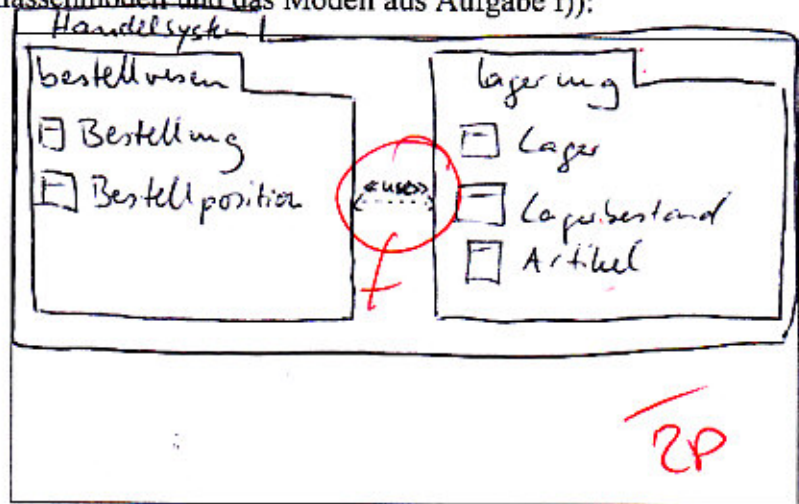 lassenmodell und das Modell aus Aufgabe 1)):
Handelsystem
bestellwesen
Bestellung
Bestellposition
«use»
f
lagerung
Lager
Lagerbestand
Artikel
2P